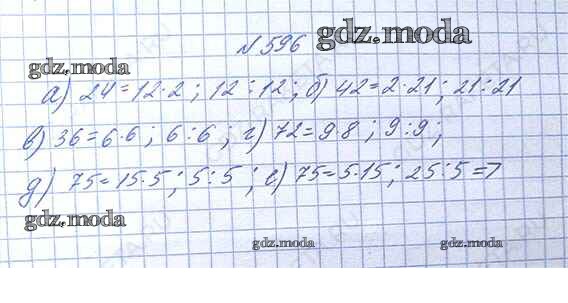 №596 gdz.moda
gdz.moda
а) 24=12·2; 12:12; б) 42=2·21; 21:21
в) 36=6·6; 6:6; г) 72=9·8; 9:9;
д) 75=15·5; 5:5; е) 75=5·15; 25:5=7
gdz.moda
gdz.moda gdz.moda